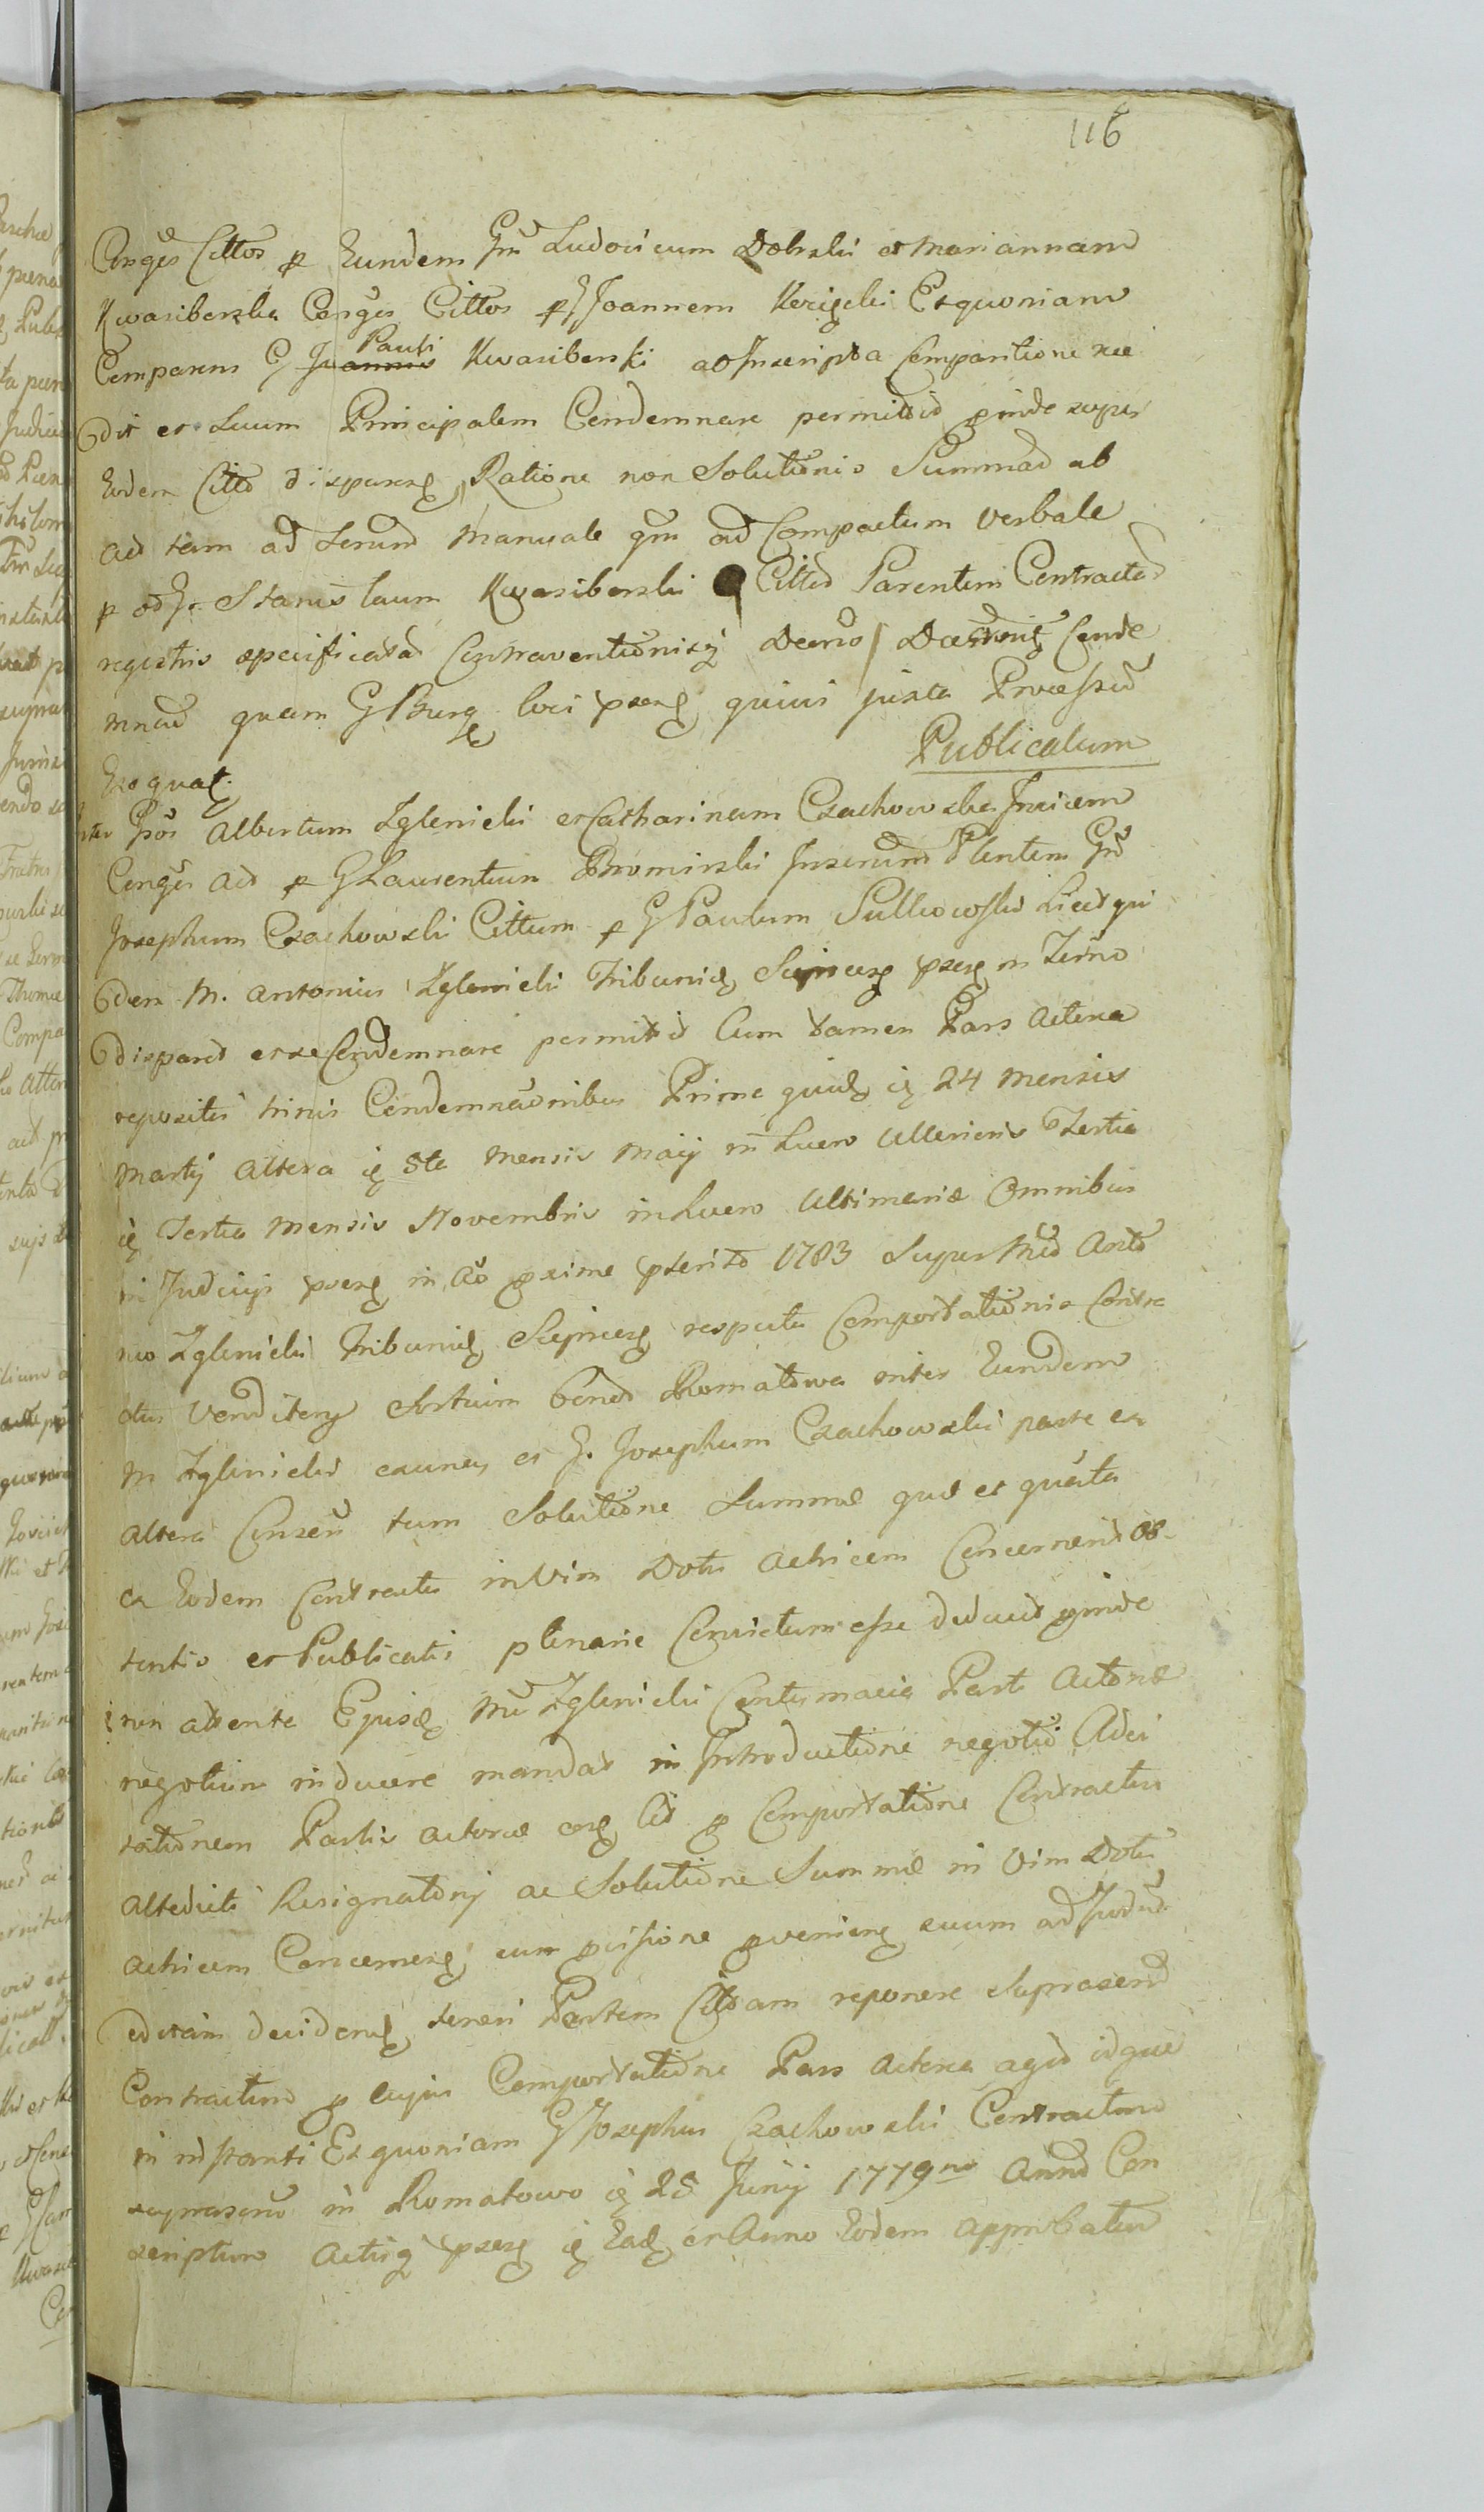 116
Conges Cittos p Eundem Gm Ludovicum Dobrski et Mariannam
Kwasiborska Conges Cittos p G Joannem Et quoniam
Comparens G Pauli Kwasiborski ab Inscripta Comparitione rece
dit et Suum Principalem Condemnare permittit pinde super
Eodem Citto disparen Ratione non Solutionis Summae ab
Act tam ad Manuale qm ad Compactum Verbale
p od G. Stanislaum Kwasiborski Citti Parentem Contracta
registris specificata Contraventionisq Conde
mnat quam G Burg loci psens quivis juxta Processum
Exequat.
Publicatum
Inter Gos Albertum Zglenicki et Catharinam Czachowska Invicem
Conges Act p G Laurentium Bromirski Plentem Gm
Josephum Czachowski Cittum p G Paulum Sulkowski Licet qui
dem M. Antonius Zglenicki Tribunid psens in Termo
disparet et se Condemnare permittit Cum tamen Pars Actorea
repositis trinis Condemnaonibus Prima quid ie 24 Mensis
Martij altera ie 5ta Mensis Maij in Lucro Ulterioris Tertia
ie Tertia Mensis Novembris in Lucro Ultimariae Omnibus
in Judicijs psens in Ao pxime pterito 1783 Super Mco Anto
nio Zglenicki Tribunid respectu Comportationis Contra
ctus Venditeny Sortium bonor Romatowa inter Eundem
M Zglenicki exuna et G. Josephum Czachowski parte ex
altera tum Solutione Summae quae et quanta
ex Eodem Contractu in Vim Dotis Actricem Concernent Ob-
tentis et Publicatis plenarie Convictum esse deducit pinde
non attenta Ejusd Mci Zglenicki Contumacia Parti Actoreae
negotium inducere mandat in Introductione negotii
tationem Partis Actoreae Cit p Comportatione Contractus
Resignationj ac Solutione Summae in Vim Dotis
Actricem Concernens cum pvisione pveniens suum ad
editam decidend teneri Partem Cittam reponere Suprascrip
Contractum p cujus Comportatione Pars Actorea agit idque
in instanti Et quoniam G Josephus Czachowski Contractum
suprascrip in Romatowo ie 25 Junij 1779no Anno Con
scriptum Actisq psens ie Ead et Anno Eodem approbatum